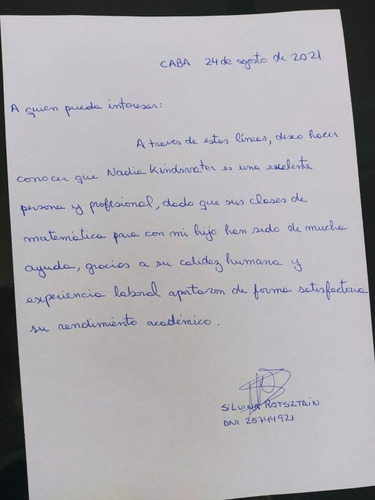 CABA 24 de agosto de 2021
A quien pueda interesar:
A traves de estas líneas, deseo hacer
conocer que Nadia Kindsvater es una exelente
persona y profesional, dado que sus clases de
matemática para con mi hijo han sido de mucha
ayuda, gracias a su calidez humana y
experiencia laboral aportaron de forma satisfactoria
su rendimiento académico.
SILVINA ROTSZTAIN
DNI 25744921